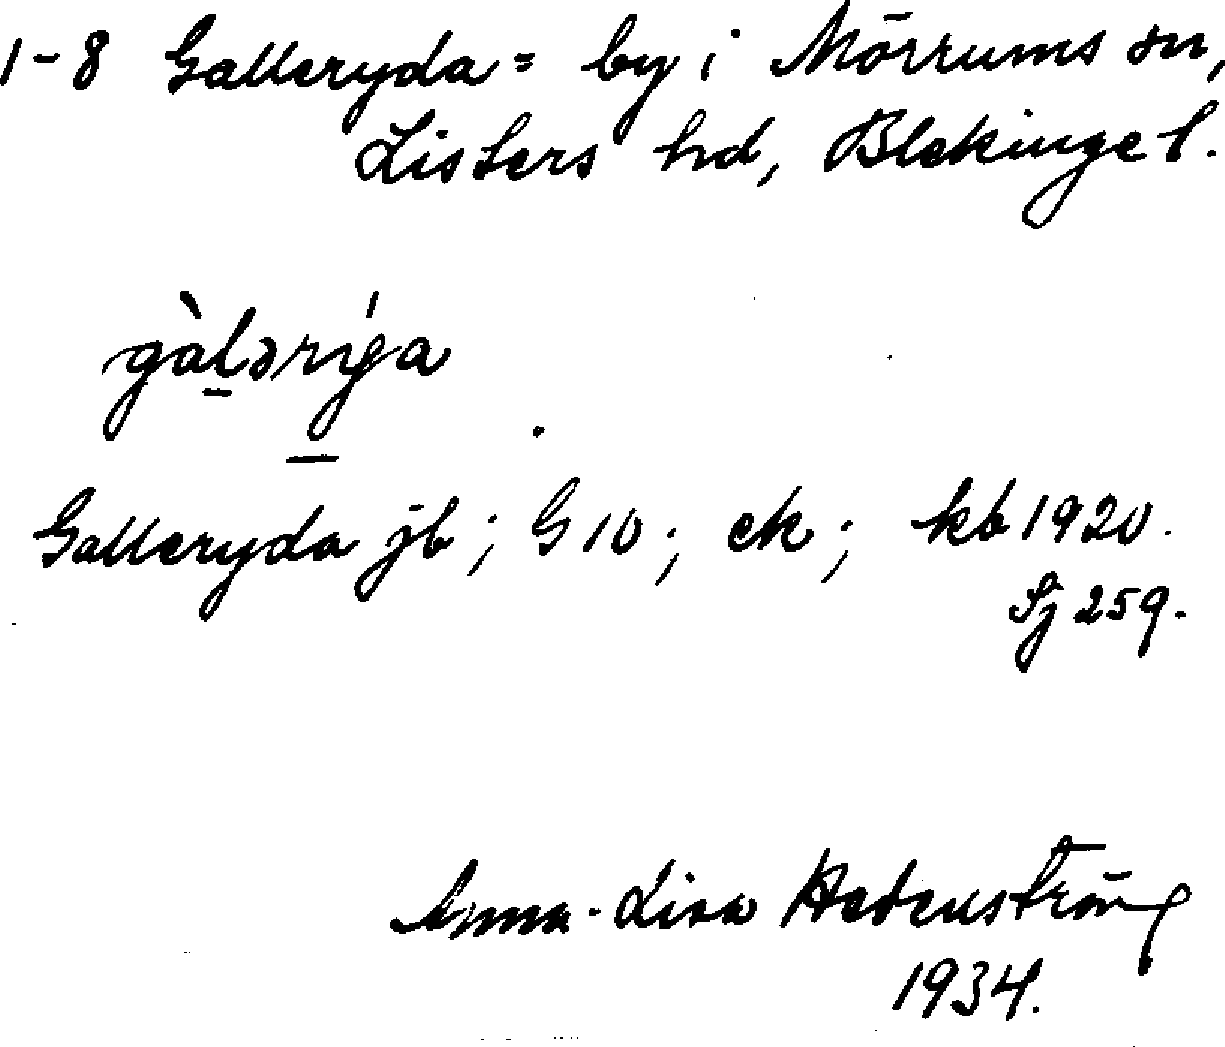 1-8 Galleryda = by i Mörrums sn,
Listers hd, Blekinge l.
gàlərýa
Galleryda jb; G 10; ek; kb 1920.
Sj 259.
Anna-Lisa Hedenström
1934.